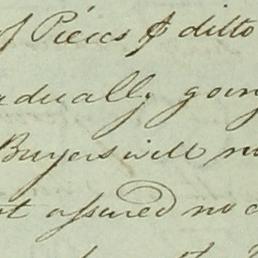 of Pieces & ditto
adually going
Buyers will no
ot assured no